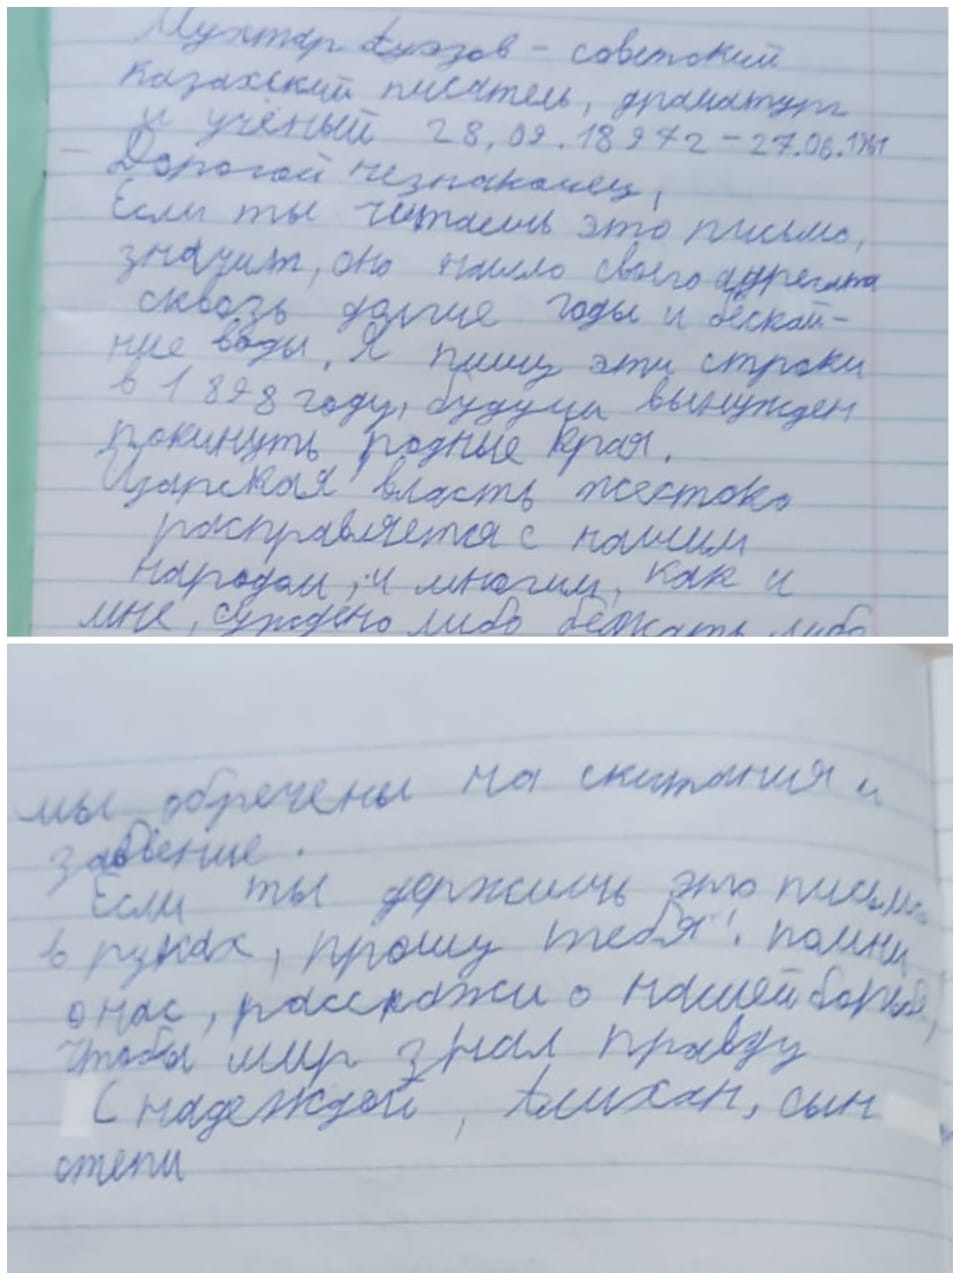 Мухтар Ауэзов - советский
казахский писатель, драматург
и учёный 28.09.1897г - 27.06.1961
Дорогой незнакомец,
Если ты читаешь это письмо,
значит, оно нашло своего адресата
сквозь долгие годы и бескай-
ние воды. Я пишу эти строки
в 1898 году, будучи вынужден
покинуть родные края.
Царская власть жестоко
расправляется с нашим
народом, и многим, как и
мне, суждено либо бежать либо
мы обречены на скитания и
забвение.
Если ты держишь это письмо
в руках, прошу тебя: помни
о нас, расскажи о нашей борьбе,
чтобы мир знал правду
С надеждой, Алихан, сын
степи